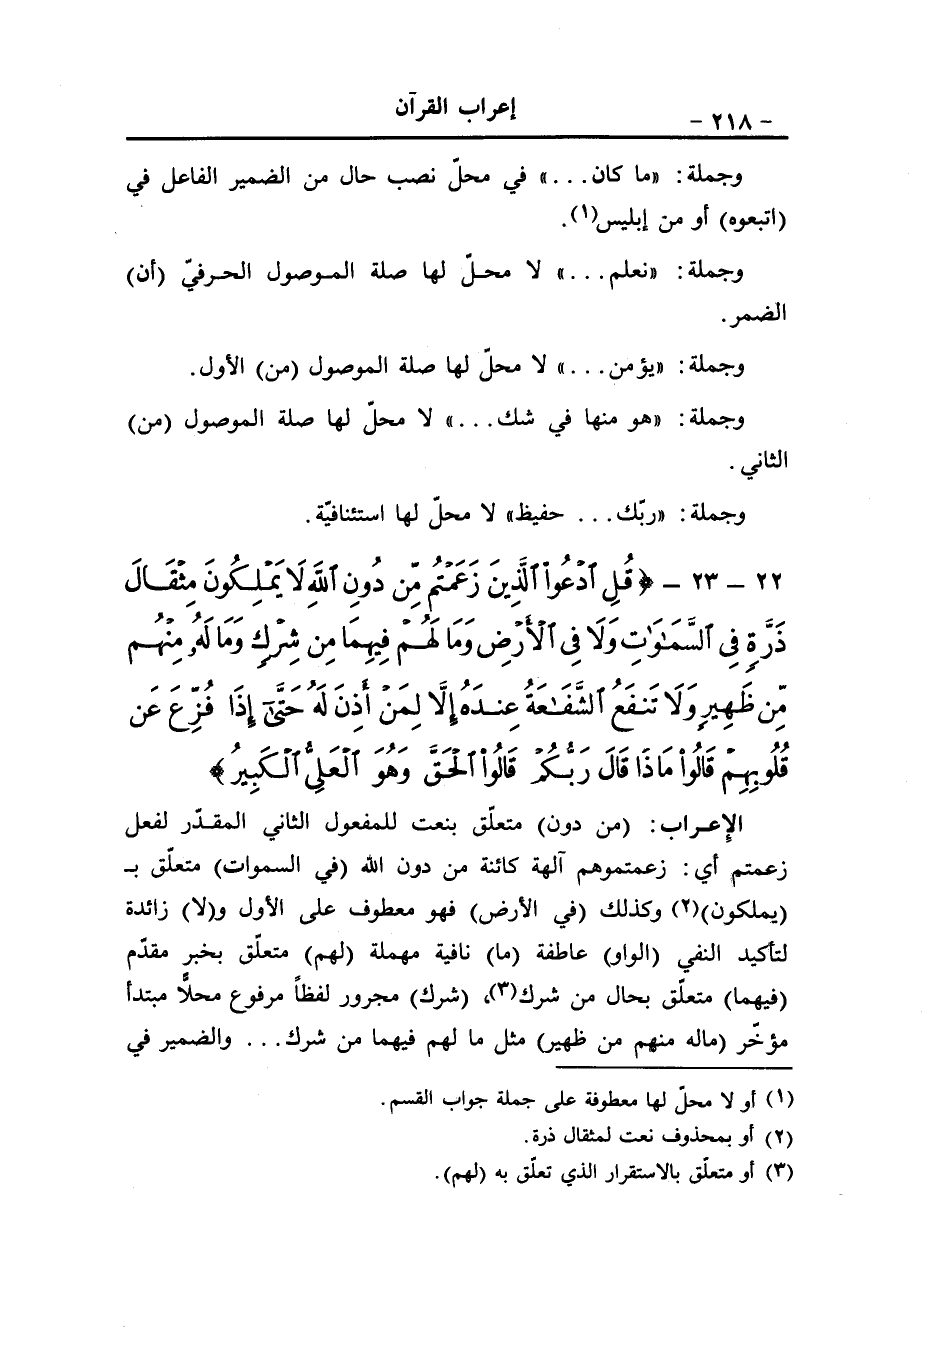 - ٢١٨ - إعراب القرآن
وجملة: «ما كان...» في محلّ نصب حال من الضمير الفاعل في
(اتبعوه) أو من إبليس(١).
وجملة: «نعلم...» لا محلّ لها صلة الموصول الحرفيّ (أن)
الضمر.
وجملة: «يؤمن...» لا محلّ لها صلة الموصول (من) الأول.
وجملة: «هو منها في شك...» لا محلّ لها صلة الموصول (من)
الثاني.
وجملة: «ربّك... حفيظ» لا محلّ لها استئنافيّة.
٢٢ - ٢٣ - ﴿قُلِ ٱدْعُوا۟ ٱلَّذِينَ زَعَمْتُم مِّن دُونِ ٱللَّهِ لَا يَمْلِكُونَ مِثْقَالَ
ذَرَّةٍ فِى ٱلسَّمَـٰوَٰتِ وَلَا فِى ٱلْأَرْضِ وَمَا لَهُمْ فِيهِمَا مِن شِرْكٍ وَمَا لَهُۥ مِنْهُم
مِّن ظَهِيرٍ وَلَا تَنفَعُ ٱلشَّفَـٰعَةُ عِندَهُۥٓ إِلَّا لِمَنْ أَذِنَ لَهُۥ حَتَّىٰٓ إِذَا فُزِّعَ عَن
قُلُوبِهِمْ قَالُوا۟ مَاذَا قَالَ رَبُّكُمْ قَالُوا۟ ٱلْحَقَّ وَهُوَ ٱلْعَلِىُّ ٱلْكَبِيرُ﴾
الإعراب: (من دون) متعلّق بنعت للمفعول الثاني المقدّر لفعل
زعمتم أي: زعمتموهم آلهة كائنة من دون الله (في السموات) متعلّق بـ
(يملكون)(٢) وكذلك (في الأرض) فهو معطوف على الأول و(لا) زائدة
لتأكيد النفي (الواو) عاطفة (ما) نافية مهملة (لهم) متعلّق بخبر مقدّم
(فيهما) متعلّق بحال من شرك(٣)، (شرك) مجرور لفظاً مرفوع محلاًّ مبتدأ
مؤخّر (ماله منهم من ظهير) مثل ما لهم فيهما من شرك... والضمير في
(١) أو لا محلّ لها معطوفة على جملة جواب القسم.
(٢) أو بمحذوف نعت لمثقال ذرة.
(٣) أو متعلّق بالاستقرار الذي تعلّق به (لهم).